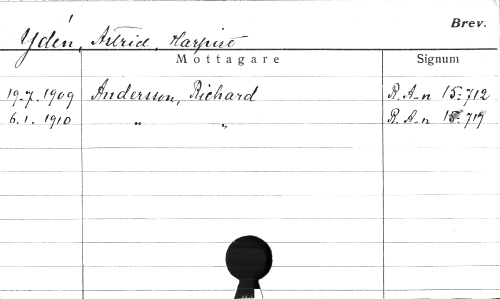 Brev.
Ydén, Astrid. Harpist
Mottagare Signum
19.7.1909 Andersson, Richard R.A-n 15:712
6.1.1910 " " R.A-n 15:717